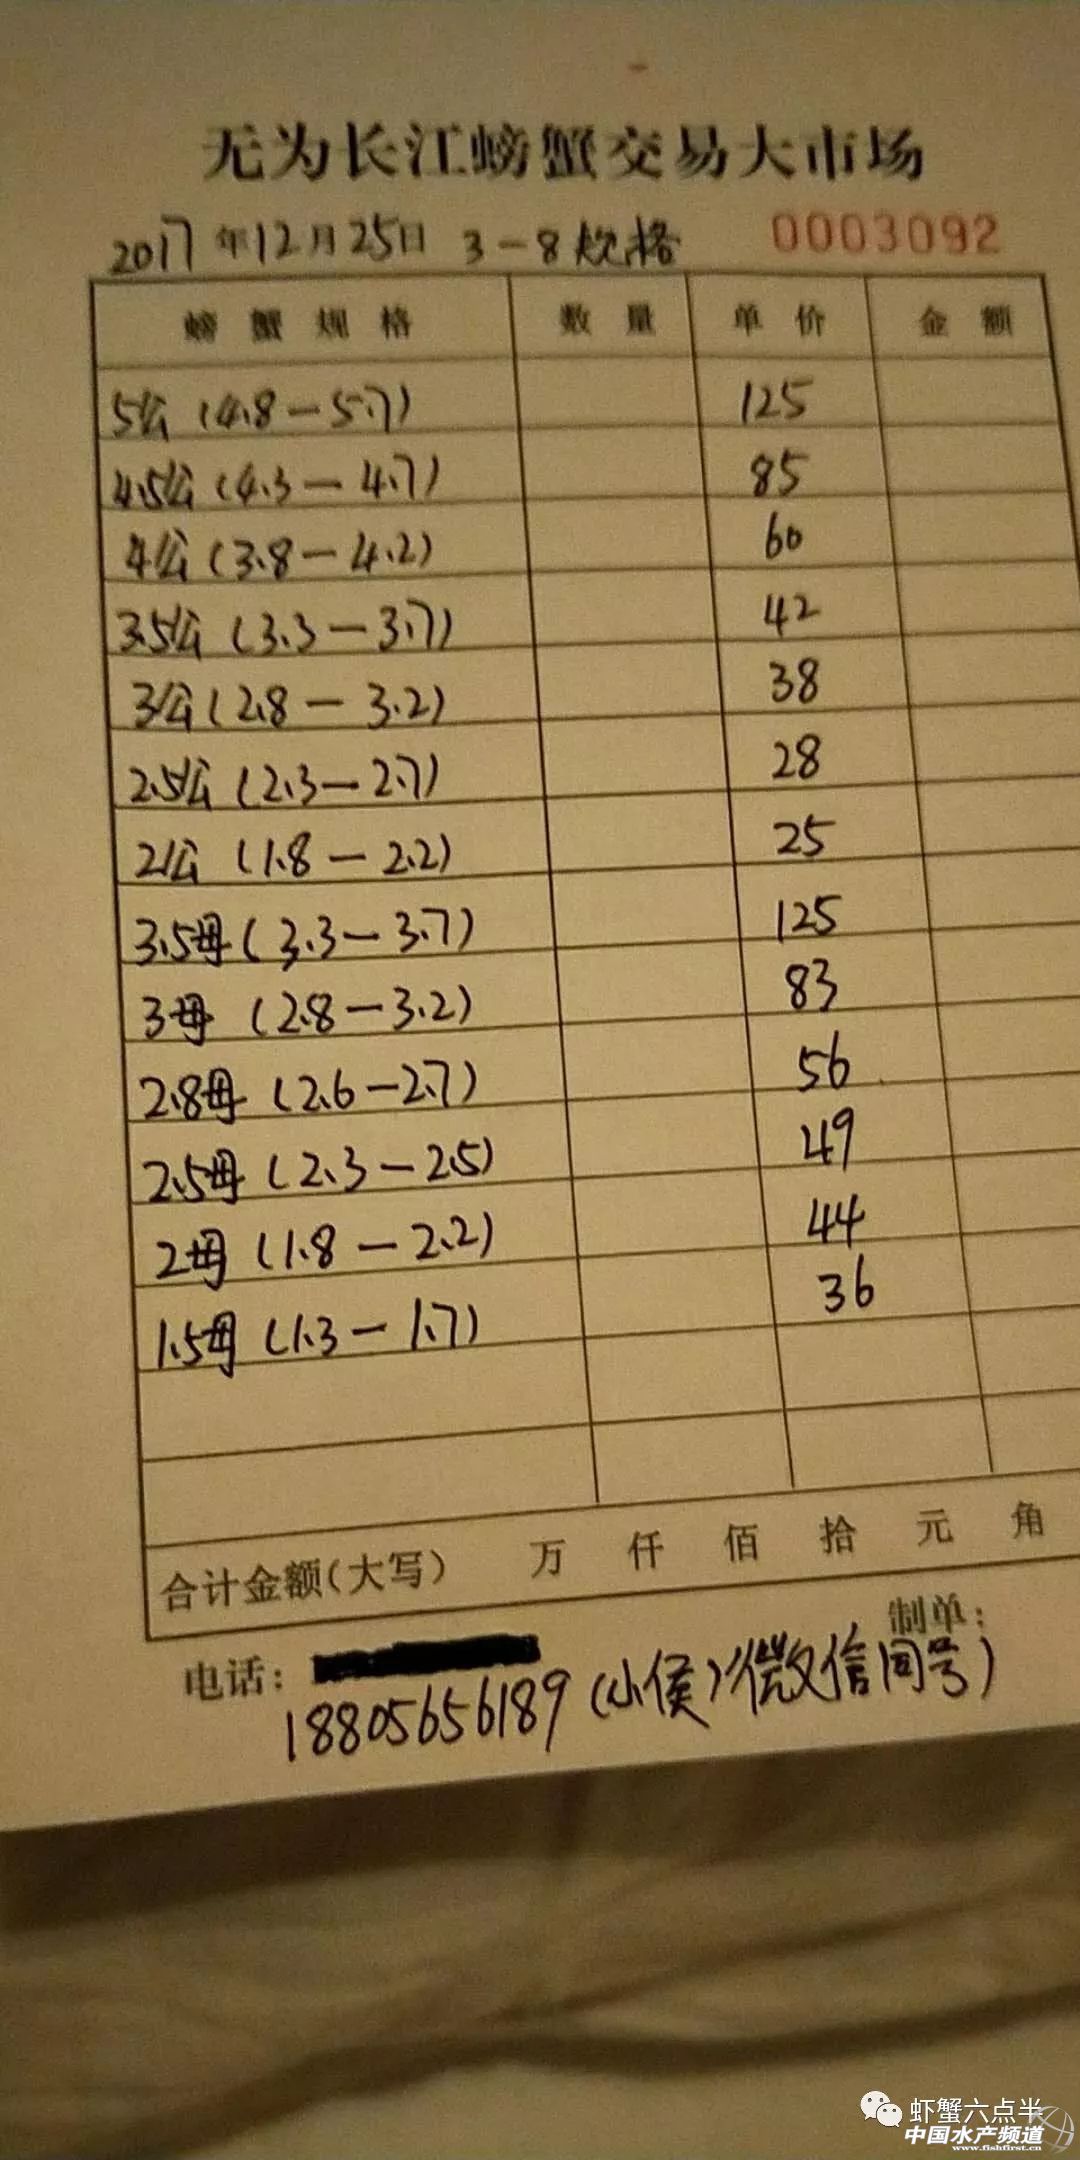 无为长江螃蟹交易大市场
2017年12月25日 3-8规格 0003092
螃蟹规格 数量 单价 金额
5公(4.8-5.7) 125
4.5公(4.3-4.7) 85
4公(3.8-4.2) 60
3.5公(3.3-3.7) 42
3公(2.8-3.2) 38
2.5公(2.3-2.7) 28
2公(1.8-2.2) 25
3.5母(3.3-3.7) 125
3母(2.8-3.2) 83
2.8母(2.6-2.7) 56
2.5母(2.3-2.5) 49
2母(1.8-2.2) 44
1.5母(1.3-1.7) 36
合计金额(大写) 万 仟 佰 拾 元 角
制单:
电话:
18805656189(小侯)(微信同号)
虾蟹六点半
中国水产频道
www.fishfirst.cn